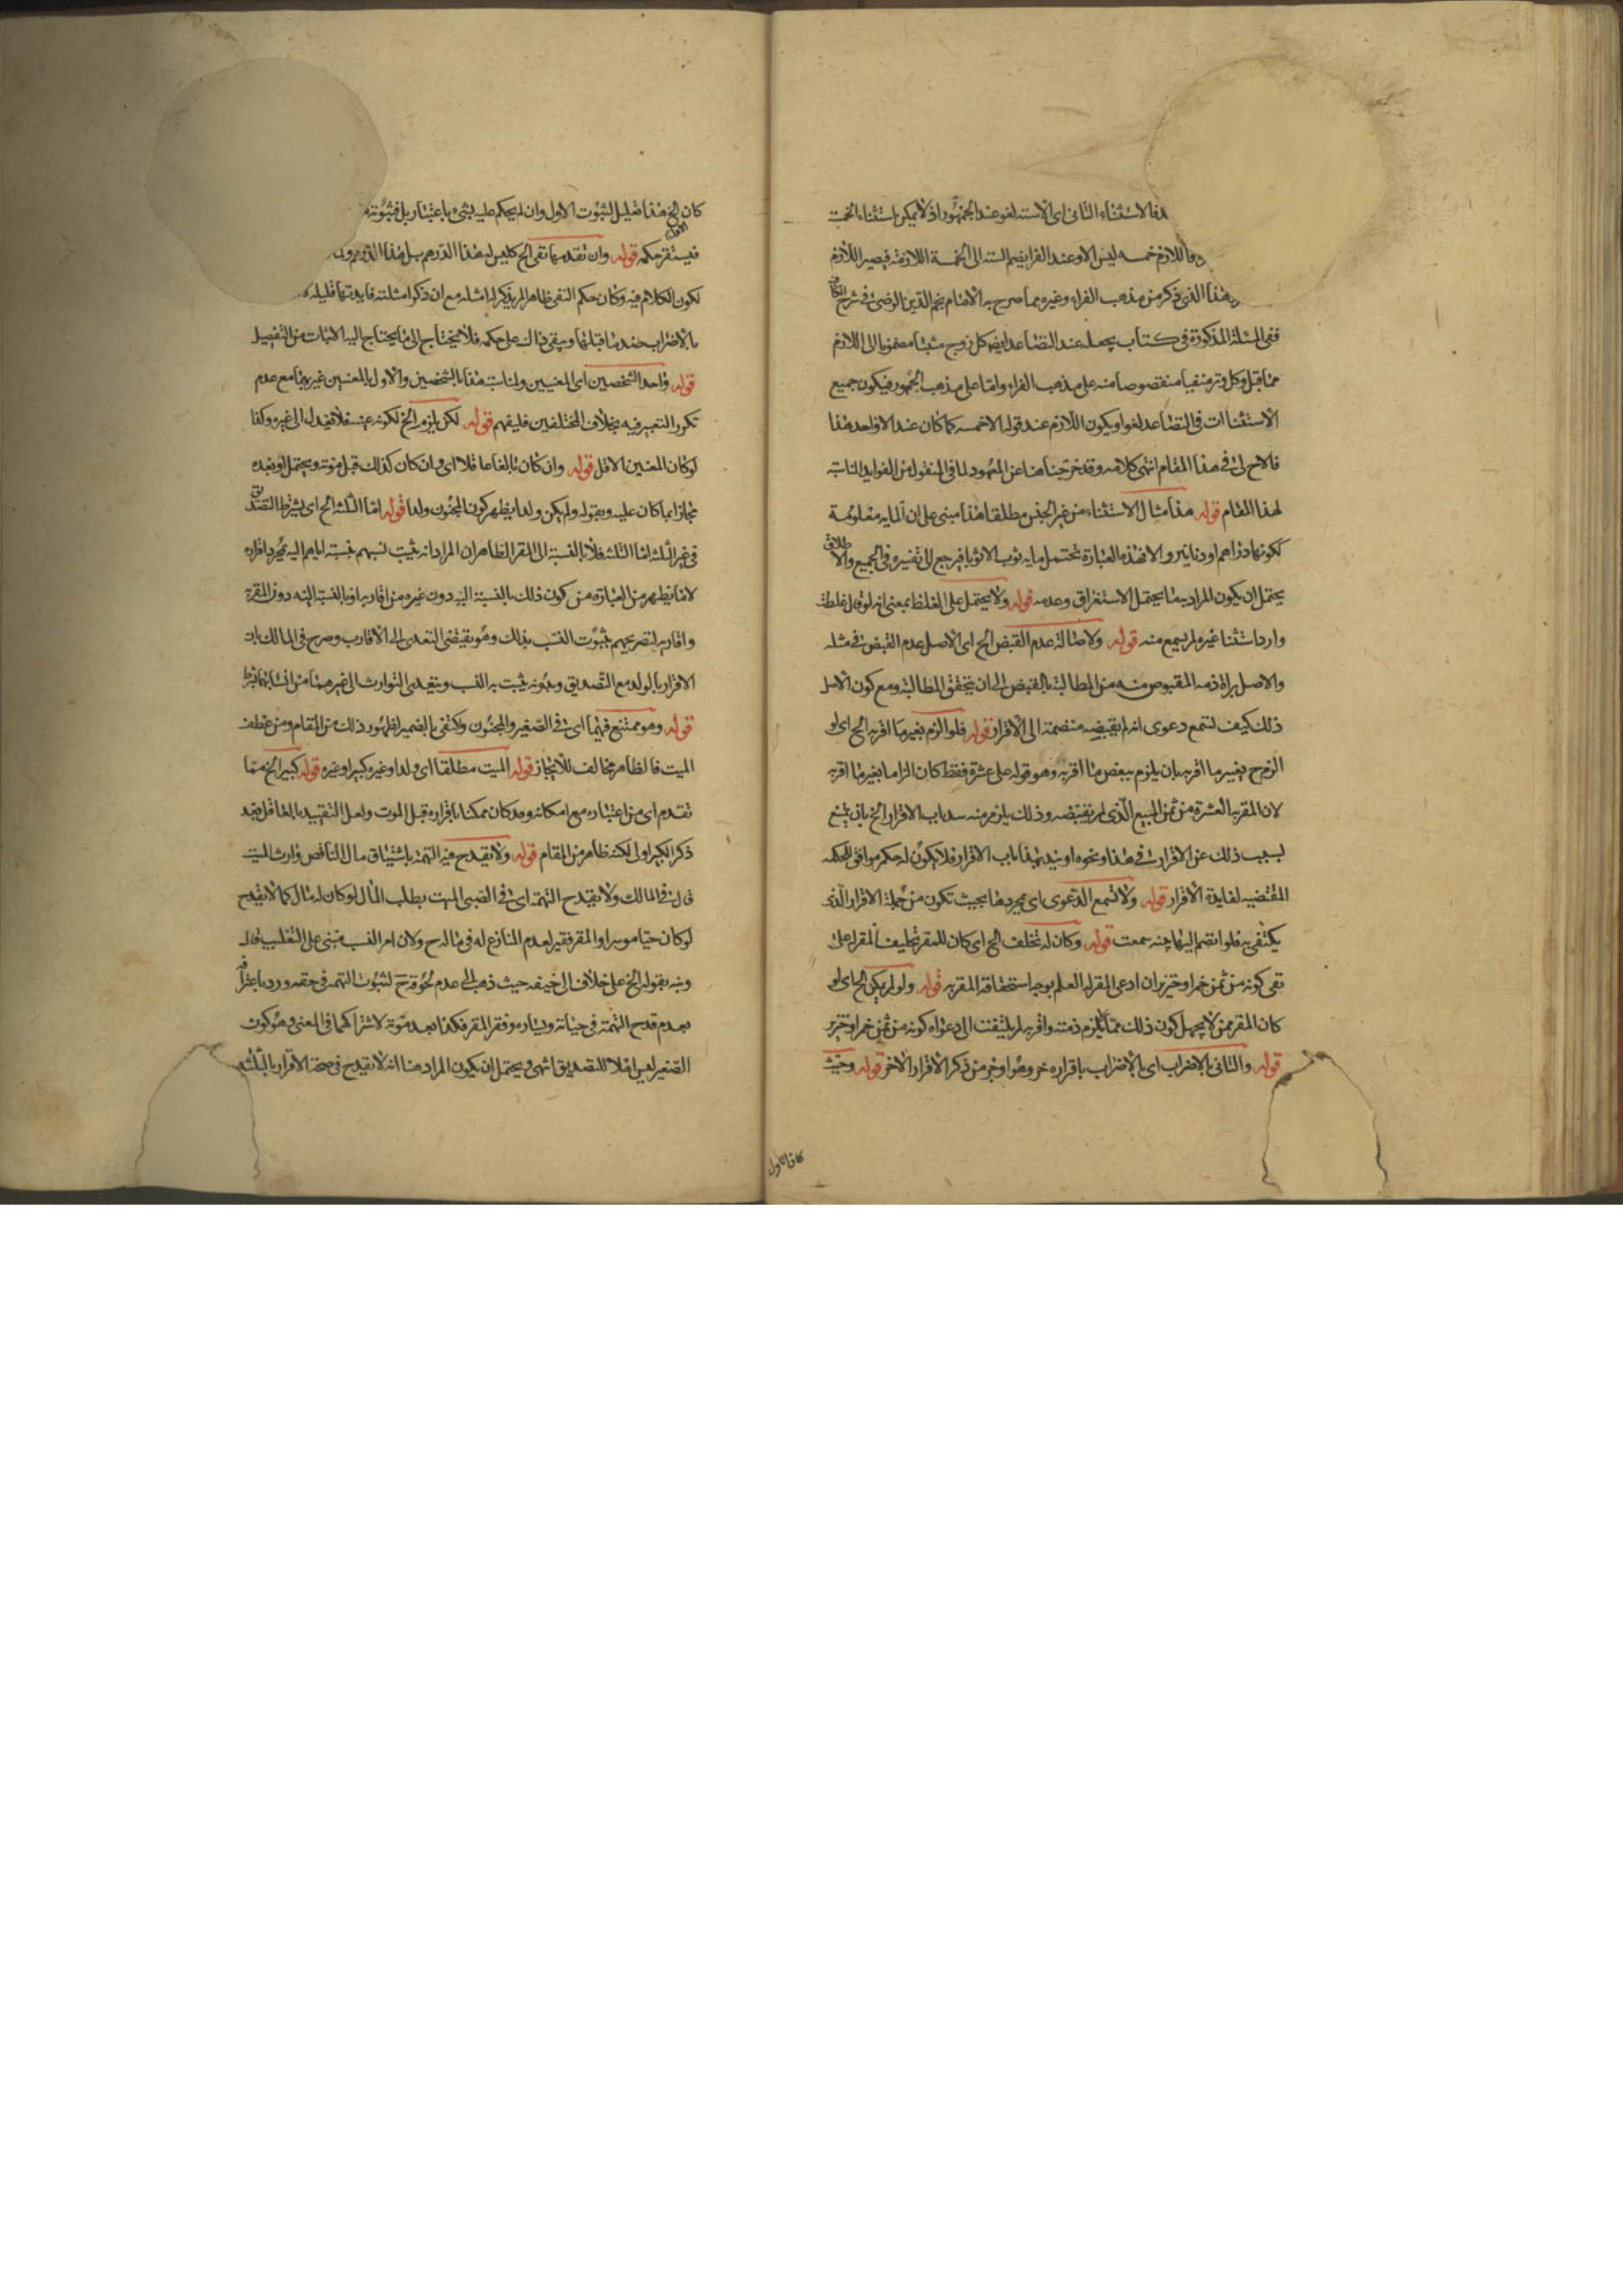 هذا الاستثناء الثانى اى الا ستة لغو عند الجمهور اذ لا يمكن استثناء الخمسة
فاللازم خمسه ليس الا وعند الفرا يضم الستة الى الخمسة اللازمة فيصير اللازم
هذا الذى ذكر من مذهب الفراء وغيره مما صرح به الامام نجم الدين الرضى فى شرح الكافية
ففى المسئلة المذكورة فى كتاب يجعل عند التصاعد ايضا كل زوج مثبتا مضموما الى اللازم
مما قبل وكل وتر منفيا منقوصا منه على مذهب الفراء واما على مذهب الجمهور فيكون جميع
الاستثناات فى التصاعد لغوا ويكون اللازم عند قوله الا خمسه كما كان عند الا واحد هذا
ما لاح لى فى هذا المقام انتهى كلامه وقد خرجنا هنا عن المعهود لما فى المنقول من الفوايد المناسبة
لهذا المقام قوله هذا مثال الاستثناء من غير الجنس مطلقا هذا مبنى على ان المايه معلومة
لكونها دراهم او دنانير والا فهذه العبارة تحتمل مايه ثوب الا ثوبا فيرجع الى تفسيره فى الجميع والاطلاق
يحتمل ان يكون المراد به ما يحتمل الاستغراق وعدمه قوله ولا يحتمل على الغلط بمعنى انه لو قال غلطت
واردا ستثنا غيره لم يسمع منه قوله ولاصالة عدم القبض الخ اى الاصل عدم القبض فى مثله
والاصل براة ذمه المقبوض منه من المطالبة بالقبض الى ان يتحقق المطالبة ومع كون الاصل
ذلك كيف لتسمع دعوى انه لم يقبضه منضمة الى الاقرار قوله فلو الزم بغير ما اقر به الخ اى لو
الزم ح بغير ما اقر به بان يلزم ببعض ما اقر به وهو قوله على عشرة فقط كان الزاما بغير ما اقر به
لان المقر به العشرة من ثمن المبيع الذى لم يقبضه وذلك يلزم منه سد باب الاقرار الخ بان يمتنع
لسبب ذلك عن الاقرار فى هذا ونحوه او ينسد بهذا باب الاقرار فلا يكون له حكم موافق للحكمه
المقتضيه لفايدة الاقرار قوله ولا تسمع الدعوى اى مجردها بحيث تكون من جملة الاقرار الذى
يكتفى به فلو انضم اليها بينه سمعت قوله وكان له تحلف الخ اى كان للمقر تحليف المقر له على
نفى كونه من ثمن خمر او خنزير ان ادعى المقر له العلم بوجه استحقاقه المقر به قوله ولو لم يكن الخ اى لو
كان المقر ممن لا يجهل كون ذلك مما لا يلزم ذمته واقر به لم يلتفت الى دعواه كونه من ثمن خمر او خنزير
قوله والثانى بالاضراب اى بالاضراب باقراره خر وهو اوجز من ذكر الاقرار الاخر قوله وحيث
كان الاول
كان الخ هذا تعليل لثبوت الاول وان لم يحكم عليه بشىء باعتبار بل فثبوته
الاول
فيستقر حكمه قوله وان تقدمها نفى الخ كليس له هذا الدرهم بل هذا الدرهم ولـ
لكون الكلام فيه وكان حكم النفى ظاهرا لم يذكر له امثله مع ان ذكر امثلته فايدتها قليله
بالاضراب ضد ما قبلها ويبقى ذالك على حكمه فلا يحتاج الى ما يحتاج اليه الاثبات من التفصيل
قوله واحد الشخصين اى المعنيين ولمناسبة هذا بالشخصين والاول بالمعنيين غير بينهما مع عدم
تكرر التعبير فيه بخلاف المختلفين فليفهم قوله لكن يلزم الخ لكونه عينه فلا يعدل الى غيره وكذا
لو كان المعين الاقل قوله وان كان بالغا عاقلا اى وان كان كذلك قبل موته ويحتمل او بعده
مجازا بما كان عليه وبقوله ولم يكن ولدا يظهر كون المجنون ولدا قوله اما الثلثه الخ اى يشترط التصديق
فى غير الثلثه اما الثلثه فلا بالنسبة الى المقر الظاهر ان المراد انه يثبت نسبهم بنسبته اياهم اليه بمجرد اقراره
لا ما يظهر من العبارة من كون ذلك بالنسبة اليه دون غيره من اقاربه او بالنسبة اليه دون المقر به
واقاربه لتصريحهم بثبوت النسب بذلك وهو يقتضى التعدى الى الاقارب وصرح فى المالك بان
الاقرار بالولد مع التصديق وبدونه يثبت به النسب ويتعدى التوارث الى غيرهما من انسابهما بشرط
قوله وهو ممتنع فيهما اى فى الصغير والمجنون واكتفى بالضمير لظهور ذلك من المقام ومن عطف
الميت فالظاهر مخالف للانجاز قوله الميت مطلقا اى ولدا وغيره كبيرا وغيره قوله كبيرا الخ مما
تقدم اى من اعتباره مع امكانه وقد كان ممكنا باقراره قبل الموت ولعل التقييد بالعاقل بعد
ذكر الكبير اولى لكنه ظاهر من المقام قوله ولا يقدح فيه التهمة باستيثاق مال الناقص وارث الميت
قال فى المالك ولا يقدح التهمة اى فى الصبى الميت بطلب المال لو كان له مال كما لا يقدح
لو كان حيا موسرا والمقر فقير لعدم المنازع له فى ماله ح ولان امر النسب مبنى على التغليب قال
ونبه بقوله الخ على خلاف ابى حنيفه حيث ذهب الى عدم لحوقه ح لثبوت التهمه فى حقه ورد باعترافه
بعدم قدح التهمة فى حياته ويساره وفقر المقر فكذا بعد موته لاشتراكهما فى المعنى وهو كون
الصغير ليس اهلا للتصديق انتهى ويحتمل ان يكون المراد هنا انه لا يقدح فى صحة الاقرار بالثلثه